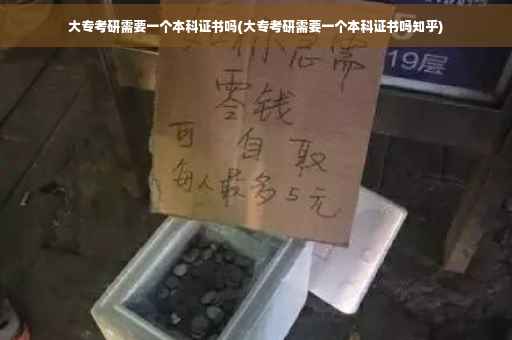 大专考研需要一个本科证书吗(大专考研需要一个本科证书吗知乎)
你急需
零钱
可自取
每人最多5元
19层